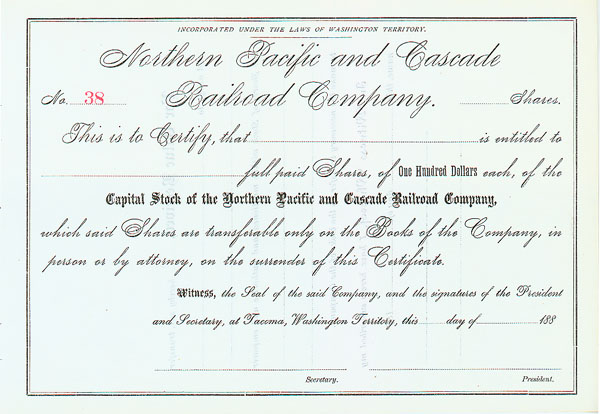 INCORPORATED UNDER THE LAWS OF WASHINGTON TERRITORY.
Northern Pacific and Cascade
No. 38 Railroad Company. Shares.
This is to Certify, that is entitled to
full paid Shares, of One Hundred Dollars each, of the
Capital Stock of the Northern Pacific and Cascade Railroad Company,
which said Shares are transferable only on the Books of the Company, in
person or by attorney, on the surrender of this Certificate.
Witness, the Seal of the said Company, and the signatures of the President
and Secretary, at Tacoma, Washington Territory, this day of 188
Secretary. President.